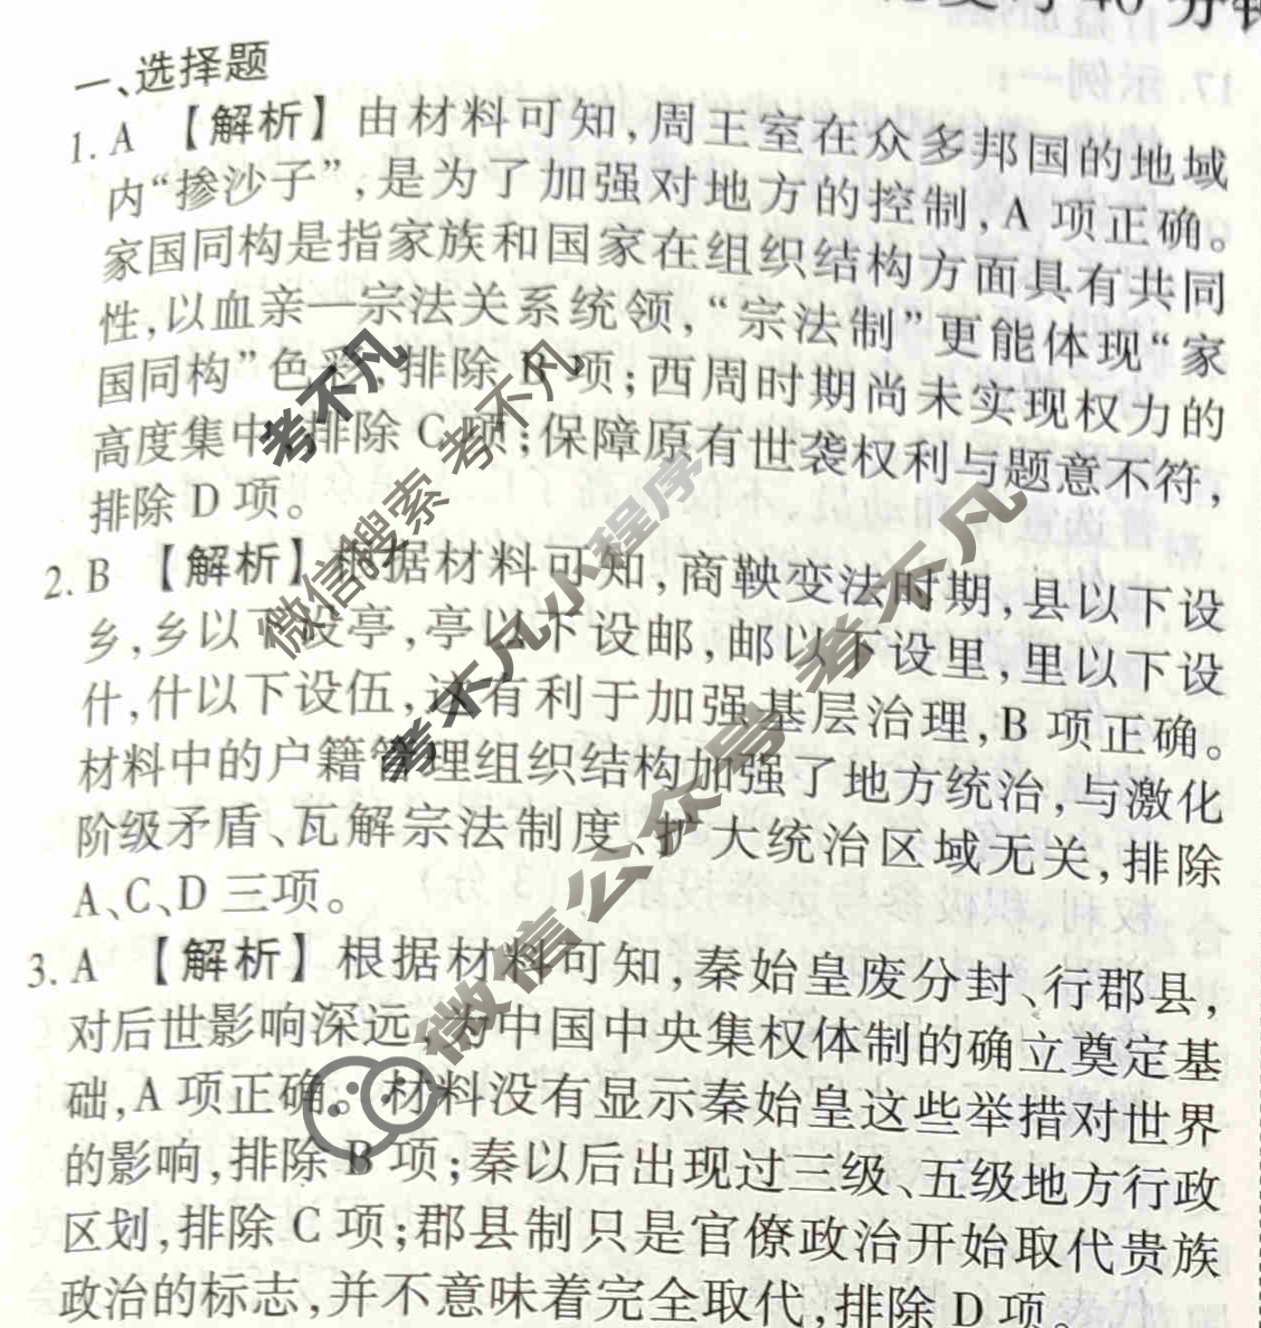 40 分钟
一、选择题
1. A 【解析】由材料可知,周王室在众多邦国的地域
内“掺沙子”,是为了加强对地方的控制,A 项正确。
家国同构是指家族和国家在组织结构方面具有共同
性,以血亲—宗法关系统领,“宗法制”更能体现“家
国同构”色彩,排除 B 项;西周时期尚未实现权力的
高度集中,排除 C 项;保障原有世袭权利与题意不符,
排除 D 项。
2. B 【解析】根据材料可知,商鞅变法时期,县以下设
乡,乡以下设亭,亭以下设邮,邮以下设里,里以下设
什,什以下设伍,这有利于加强基层治理,B 项正确。
材料中的户籍管理组织结构加强了地方统治,与激化
阶级矛盾、瓦解宗法制度、扩大统治区域无关,排除
A、C、D 三项。
3. A 【解析】根据材料可知,秦始皇废分封、行郡县,
对后世影响深远,为中国中央集权体制的确立奠定基
础,A 项正确。材料没有显示秦始皇这些举措对世界
的影响,排除 B 项;秦以后出现过三级、五级地方行政
区划,排除 C 项;郡县制只是官僚政治开始取代贵族
政治的标志,并不意味着完全取代,排除 D 项。
考不凡
微信搜索 考不凡
考不凡小程序
微信公众号 考不凡